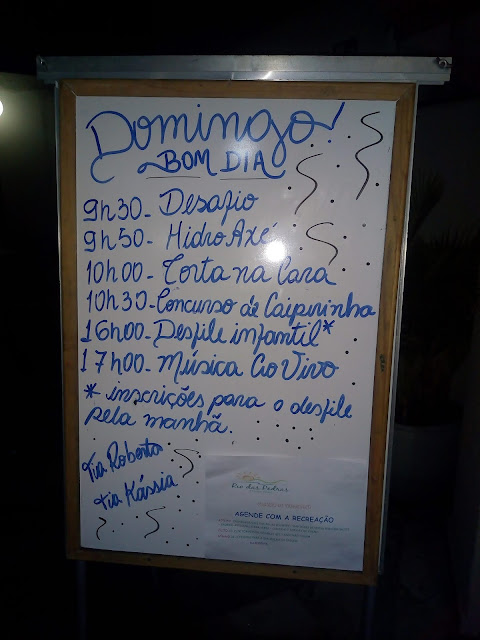 Domingo!
BOM DIA
9h30 - Desafio
9h50 - HidroAxé
10h00 - Torta na Cara
10h30 - Concurso de Caipirinha
16h00 - Desfile infantil*
17h00 - Música Ao Vivo
* inscrições para o desfile
pela manhã.
Tia Roberta
Tia Kássia
Rio das Pedras
AGENDE COM A RECREAÇÃO